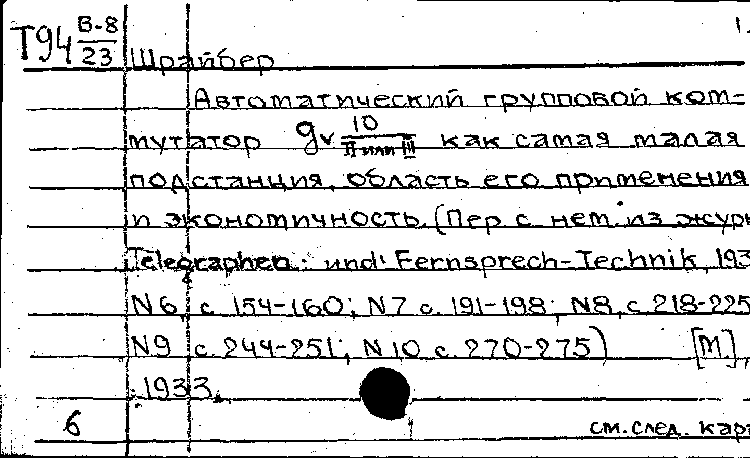 1.
Т94 В-8/23 Шрайбер
Автоматический групповой ком=
мутатор gv 10/II или III как самая малая
подстанция, область его применения
и экономичность. (Пер с нем. из журн
Telegraphen und Fernsprech-Technik, 193
N6, с. 154-160; N7 с. 191-198; N8, с 218-225
N9 с. 244-251; N10 с. 270-275) [М],
1933.
6 см. след. карт